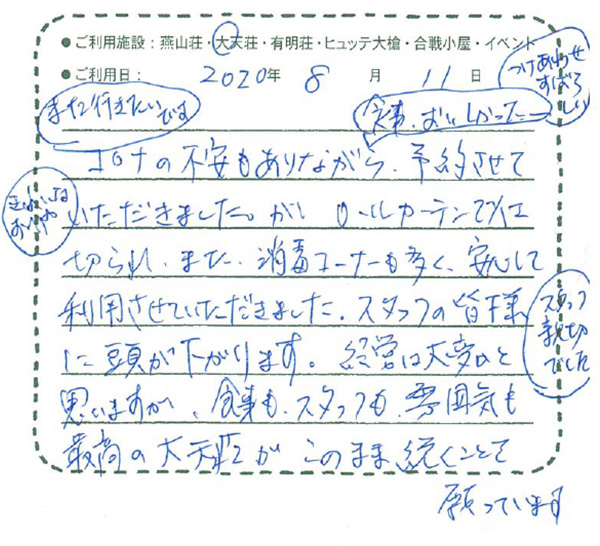 ●ご利用施設：燕山荘・大天荘・有明荘・ヒュッテ大槍・合戦小屋・イベント
●ご利用日： 2020年 8 月 11 日
つけあわせ
すばらしい
また行きたいです
食事、おいしかった
コロナの不安もありながら、予約させて
いただきました。が、ロールカーテンで仕
切られ、また、消毒コーナーも多く、安心して
利用させていただきました。スタッフの皆様
に頭が下がります。経営は大変だと
思いますが、食事も、スタッフも、雰囲気も
最高の大天荘が このまま続くことを
願っています
スタッフ
親切
でした